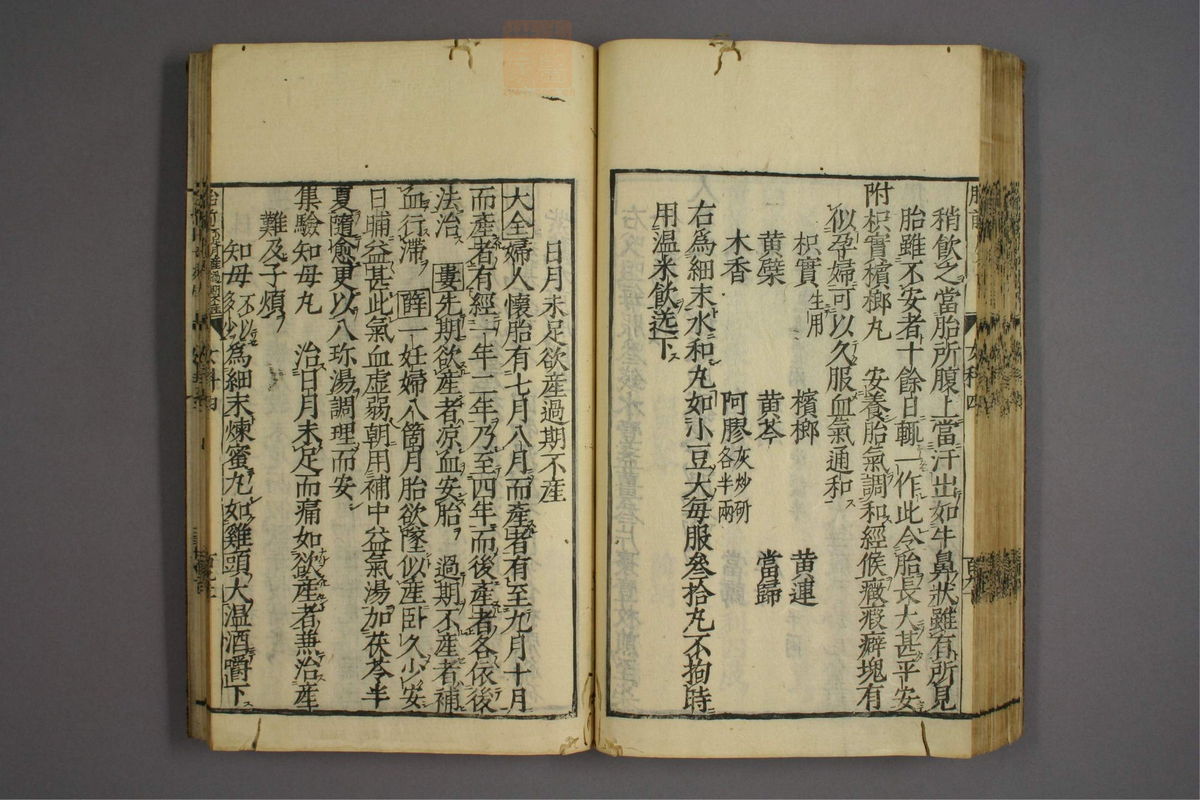 稍飲之當胎所腹上當汗出如牛鼻狀雖有所見
胎雖不安者十餘日輒一作此令胎長大甚平安
附枳實檳榔丸　安養胎氣調和經候癥瘕癖塊有
似孕婦可以久服血氣通和
枳實生用　檳榔　黄連
黄檗　黄芩　當歸
木香　阿膠灰炒研各半兩
右爲細末水和丸如小豆大每服叄拾丸不拘時
用温米飲送下
日月未足欲産過期不産
大全婦人懷胎有七月八月而産者有至九月十月
而産者有經一年二年乃至四年而後産者各依後
法治　婁先期欲産者凉血安胎　過期不産者補
血行滯　薛一妊婦八箇月胎欲墜似産卧久少安
日晡益甚此氣血虚弱朝用補中益氣湯加茯苓半
夏隨愈更以八珎湯調理而安
集驗知母丸　治日月未足而痛如欲産者兼治産
難及子煩
知母不以多少爲細末煉蜜丸如雞頭大温酒嚼下
女科四